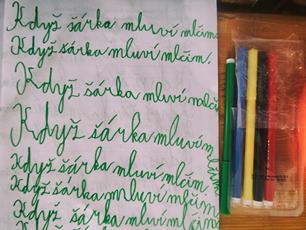 Když šárka mluví mlčím
Když šárka mluví mlčím.
Když šárka mluví
Když šárka mluvím
Když šárka mluvím mlčím
Když šárka mluví mlčím
Když šárka mluví mlčím
Když šárka mluví mlčím